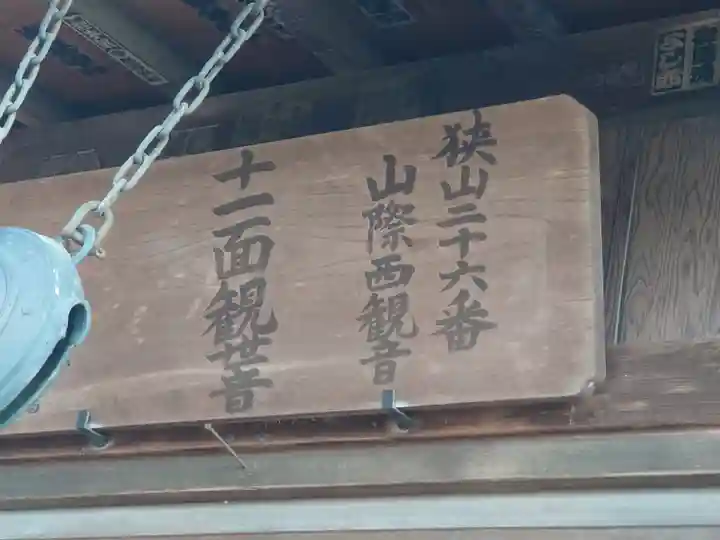 狭山二十六番
山際西観音
十一面観世音